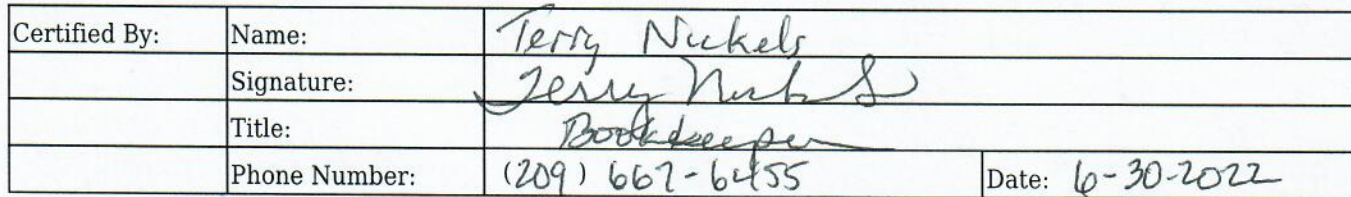 Certified By: Name: Terry Nickels
Signature: Terry Nickels
Title: Bookkeeper
Phone Number: (209) 667-6455 Date: 6-30-2022